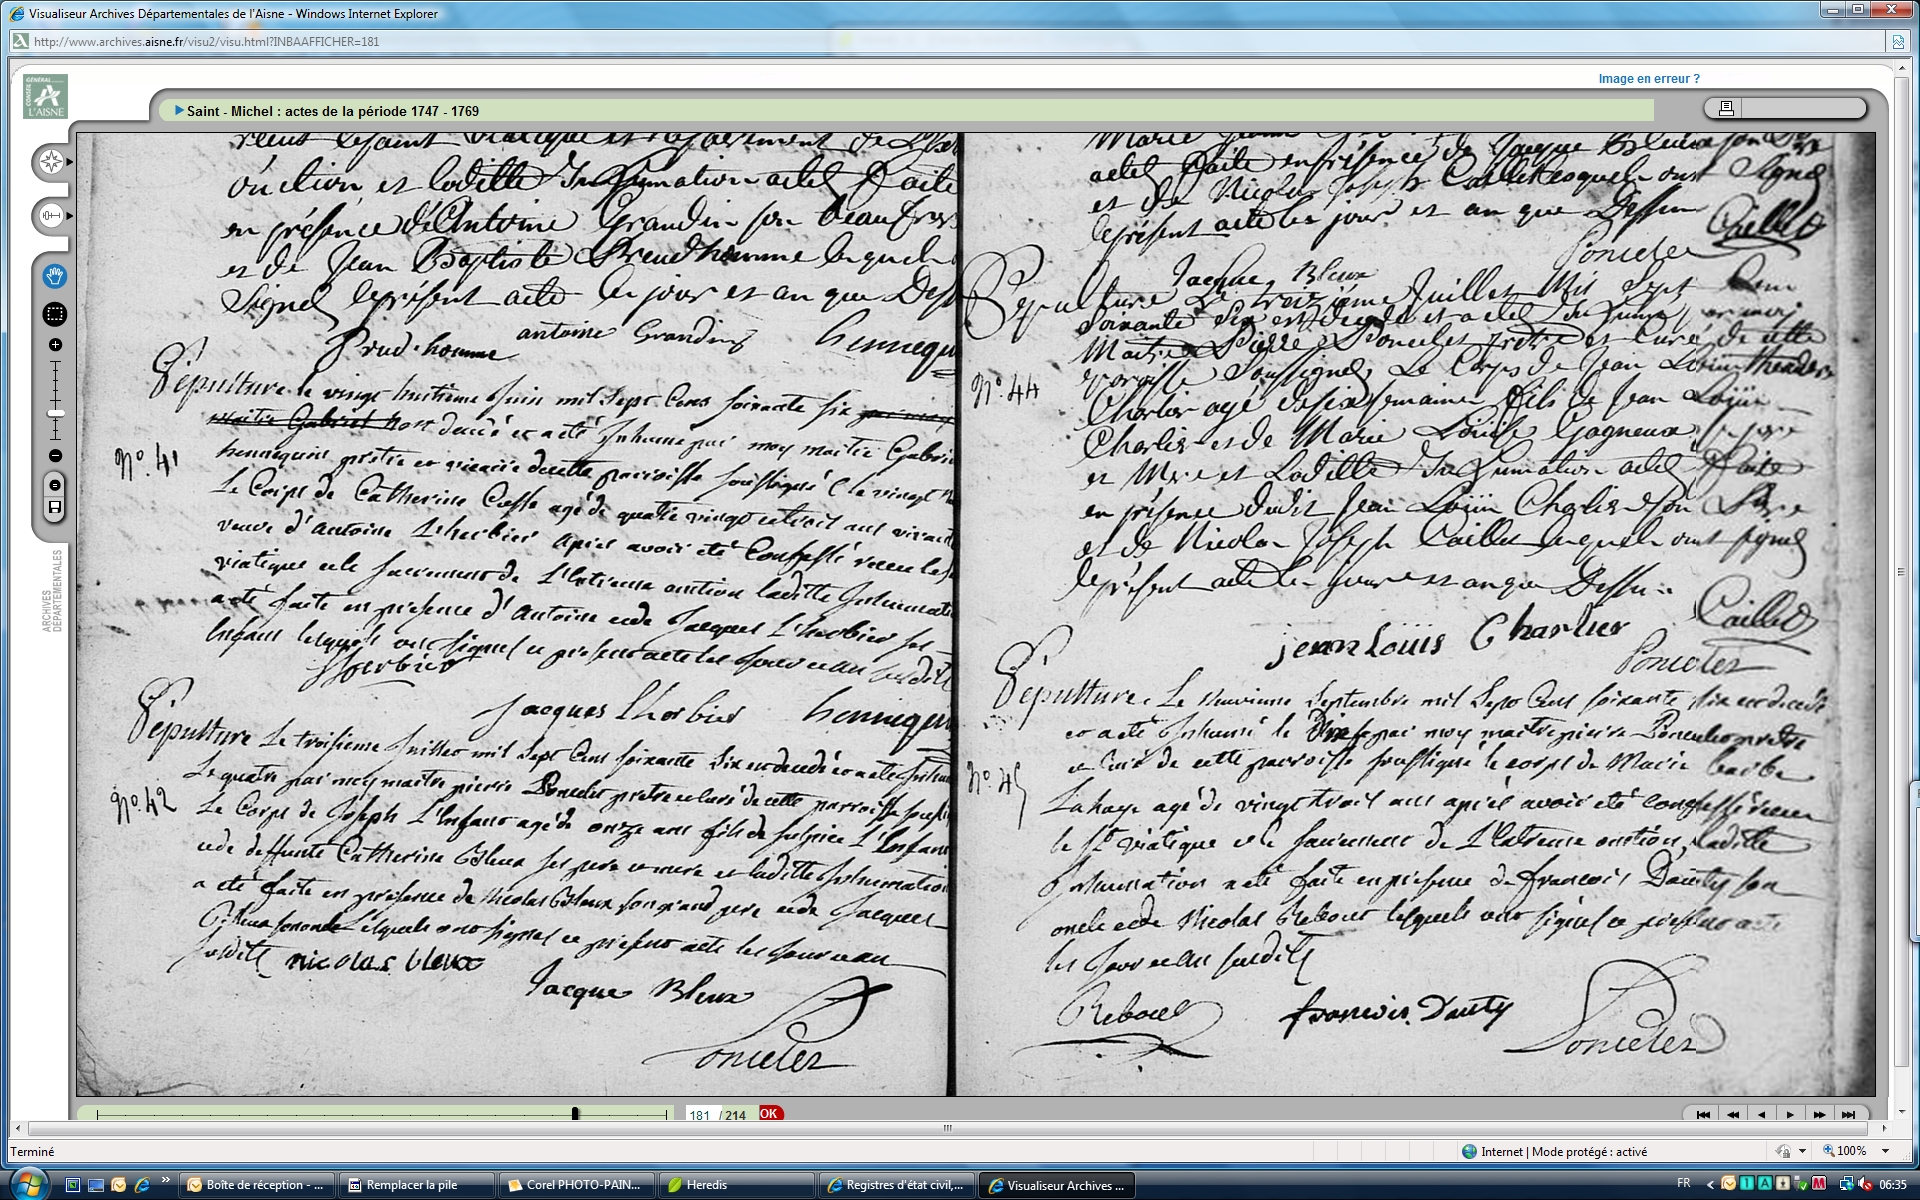 Visualiseur Archives Départementales de l'Aisne - Windows Internet Explorer
http://www.archives.aisne.fr/visu2/visu.html?INBAAFFICHER=181
Image en erreur ?
CONSEIL GÉNÉRAL L'AISNE
Saint - Michel : actes de la période 1747 - 1769
ARCHIVES DÉPARTEMENTALES
onction et laditte Inhumation a eté faite
en présence d'Antoine Grandin son beau frere
et de Jean Baptiste Preudhomme lesquels
signé le présent acte les jour et an que
Prud homme antoine Grandin hennequ
Sépulture le vingt huitieme Juin mil sept cens soixante six par moy
maitre Gabriel est decedé et a eté Inhumé par moy maitre Gabriel
N°. 41
hennequin pretre et vicaire de cette parroisse soussigné le vingt
Le Corps de Catherine agé de quatre vingt et trois ans vivante
veuve d'Antoine Lherbier apres avoir eté Confessé receu le
viatique et le sacrement de L'Extreme onction laditte Inhumation
a eté faite en presence d'Antoine et de Jacques L'herbier ses
Enfans lesquels ont signés ce present acte les jour et an susdits
Lherbier
Jacques Lherbier hennequ
Sépulture Le troisieme Juillet mil sept Cens soixante six est decedé et a eté Inhumé
Le quatre par moy maitre pierre Poncelet pretre et curé de cette parroisse
N°. 42
Le Corps de Joseph L'Enfant agé de onze ans fils de Sulpice L'Enfant
et de deffunte Catherine Bleux ses pere et mere et laditte Inhumation
a eté faite en presence de Nicolas Bleux son grand pere et de Jacques
Bleux son oncle Lesquels ont signés ce present acte les jour et an
susdits nicolas bleux
Jacque Bleux
Poncelet
Marie
acté faite en présence de Jacque Bleux son
et de Nicolas Joseph Caillet lesquels ont signé
le présent acte les jour et an que Dessu
Caillet
Poncelet
Jacque Bleux
Sépulture Le troizième Juillet Mil Sept Cens
soixante Six est decedé et a eté Inhumé par moi
Maitre Pierre Poncelet prêtre et Curé de cette
N°. 44
paroisse soussigné Le Corps de Jean Louiis
Charlier agé de six semaines fils de Jean Louiis
Charlier et de Marie Louise Gagneux ses pere
et Mere et Laditte Inhumation a eté faite
en présence dudit Jean Louiis Charlier son Pere
et de Nicolas Joseph Caillet lesquels ont signé
le présent acte les jours et an que Dessus
Caillet
jean Louïs Charlier
Poncelet
Sépulture Le neuvieme Septembre mil Sept Cens soixante six est decedé
et a eté Inhumé le par moy maitre pierre Poncelet pretre
N°. 45
et Curé de cette parroisse soussigné le corps de Marie barbe
Lahaye agé de vingt trois ans après avoir eté confessé receu
le St. viatique et le sacrement de L'Extreme onction, laditte
Inhumation a eté faite en presence de françois Dauty son
oncle et de Nicolas Reboul lesquels ont signés ce present acte
les jour et an susdits
Reboul françois Dauty Poncelet
181 / 214 OK
Terminé
Internet | Mode protégé : activé
100%
Boîte de réception - ...
Remplacer la pile
Corel PHOTO-PAIN...
Heredis
Registres d'état civil,...
Visualiseur Archives ...
FR
06:35